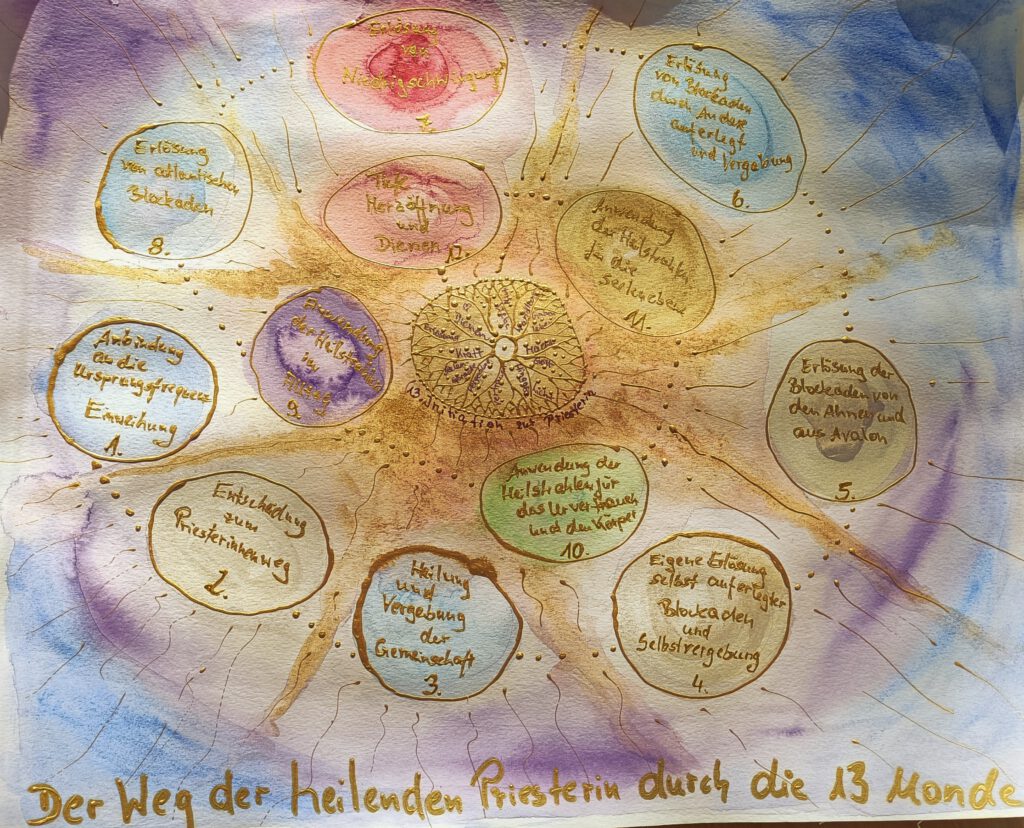 Erlösung
von
Niedrigschwingungen
7.
Erlösung
von Blockaden
durch Andere
auferlegt
und Vergebung
6.
Erlösung
von atlantischen
Blockaden
8.
Tiefe
Herzöffnung
und
Dienen
12.
Anwendung
der Heilstrahlen
für die
Seelenebene
11.
Anbindung
an die
Ursprungsfrequenz
Einweihung
1.
Anwendung
der Heilstrahlen
im
Alltag
9.
Kraft
13. Initiation zur Priesterin
Erlösung der
Blockaden von
den Ahnen und
aus Avalon
5.
Entscheidung
zum
Priesterinnenweg
2.
Anwendung der
Heilstrahlen für
das Urvertrauen
und den Körper
10.
Heilung
und
Vergebung
der
Gemeinschaft
3.
Eigene Erlösung
selbst auferlegter
Blockaden
und
Selbstvergebung
4.
Der Weg der heilenden Priesterin durch die 13 Monde